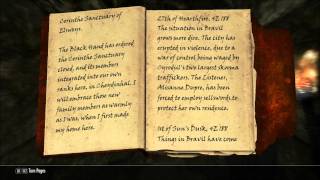 Corinthe Sanctuary of
Elsweyr.
The Black Hand has ordered
the Corinthe Sanctuary
closed, and its members
integrated into our own
ranks here, in Cheydinhal. I
will embrace these new
family members as warmly
as I was, when I first made
my home here.
27th of Hearthfire, 4E 188
The situation in Bravil
grows more dire. The city has
erupted in violence, due to a
war of control being waged by
Cyrodiil's two largest skooma
traffickers. The Listener,
Alisanne Dupre, has been
forced to employ sellswords to
protect her own residence.
1st of Sun's Dusk, 4E 188
Things in Bravil have come
Turn Pages